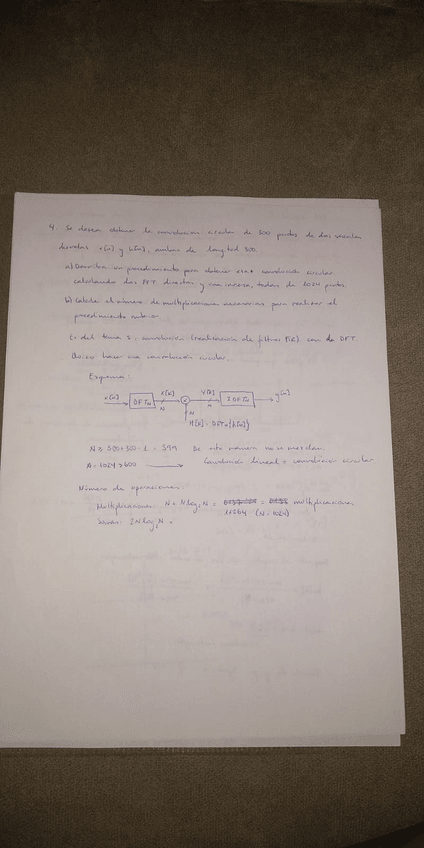 4. Se desea obtener la convolución circular de 300 puntos de dos señales
discretas x[n] y h[n], ambas de longitud 300.
a) Describa un procedimiento para obtener convolución circular
calculando dos FFT directas y una inversa, todas de 1024 puntos.
b) Calcule el número de multiplicaciones necesarias para realizar el
procedimiento anterior.
Es del tema 5, convolución (realización de filtros FIR) con la DFT.
Quiero hacer una convolución circular.
Esquema:
x[n] → DFT_N X[k] → × Y[k] → IDFT_N → y[n]
N N
N
H[k] = DFT_N{h[n]}
N ≥ 300+300-1 = 599 De esta manera no se mezclan.
N = 1024 > 600 → Convolución lineal = convolución circular
Número de operaciones:
Multiplicaciones: N + N log₂ N = = multiplicaciones
11264 (N = 1024)
Sumas: 2N log₂ N =